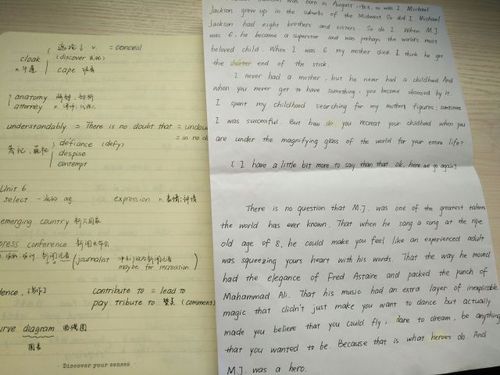 v. = conceal
cloak (discover
n. cape
anatomy 解剖
attorney n.
understandably = There is no doubt that =
defiance (defy)
despise
contempt
Unit 6
select
expression n. 表情
emerging country 新兴国家
press conference 新闻发布会
journalist
maybe for recreation)
contribute to = lead to
pay tribute to 赞美 (comment)
curve diagram 曲线图
图表
Discover your senses
was born in August
Jackson grew up in the suburbs of the Midwest So did I Michael
Jackson had eight brothers and sisters. So do I. When M.J.
was 6, he became a superstar and was perhaps the world's most
beloved child. When I was 6 my mother died. I think he got
the shorter end of the stick.
I never had a mother, but he never had a childhood. And
when you never get to have something, you become obsessed by it.
I spent my childhood searching for my mother figures, sometimes
I was successful. But how do you recreat your childhood when you
are under the magnifying glass of the world for your entire life?
( I have a little bit more to say than that ok, here we go again)
There is no question that M.J. was one of the greatest talents
the world has ever known. That when he sang a song at the ripe
old age of 8, he could make you feel like an experienced adult
was squeezing your heart with his words. That the way he moved
had the elegance of Fred Astaire and packed the punch of
Muhammad Ali. That his music had an extra layer of inexplicable
magic that didn't just make you want to dance but actually
made you believe that you could fly, dare to dream, be anything
that you wanted to be. Because that is what heroes do. And
M.J. was a hero.